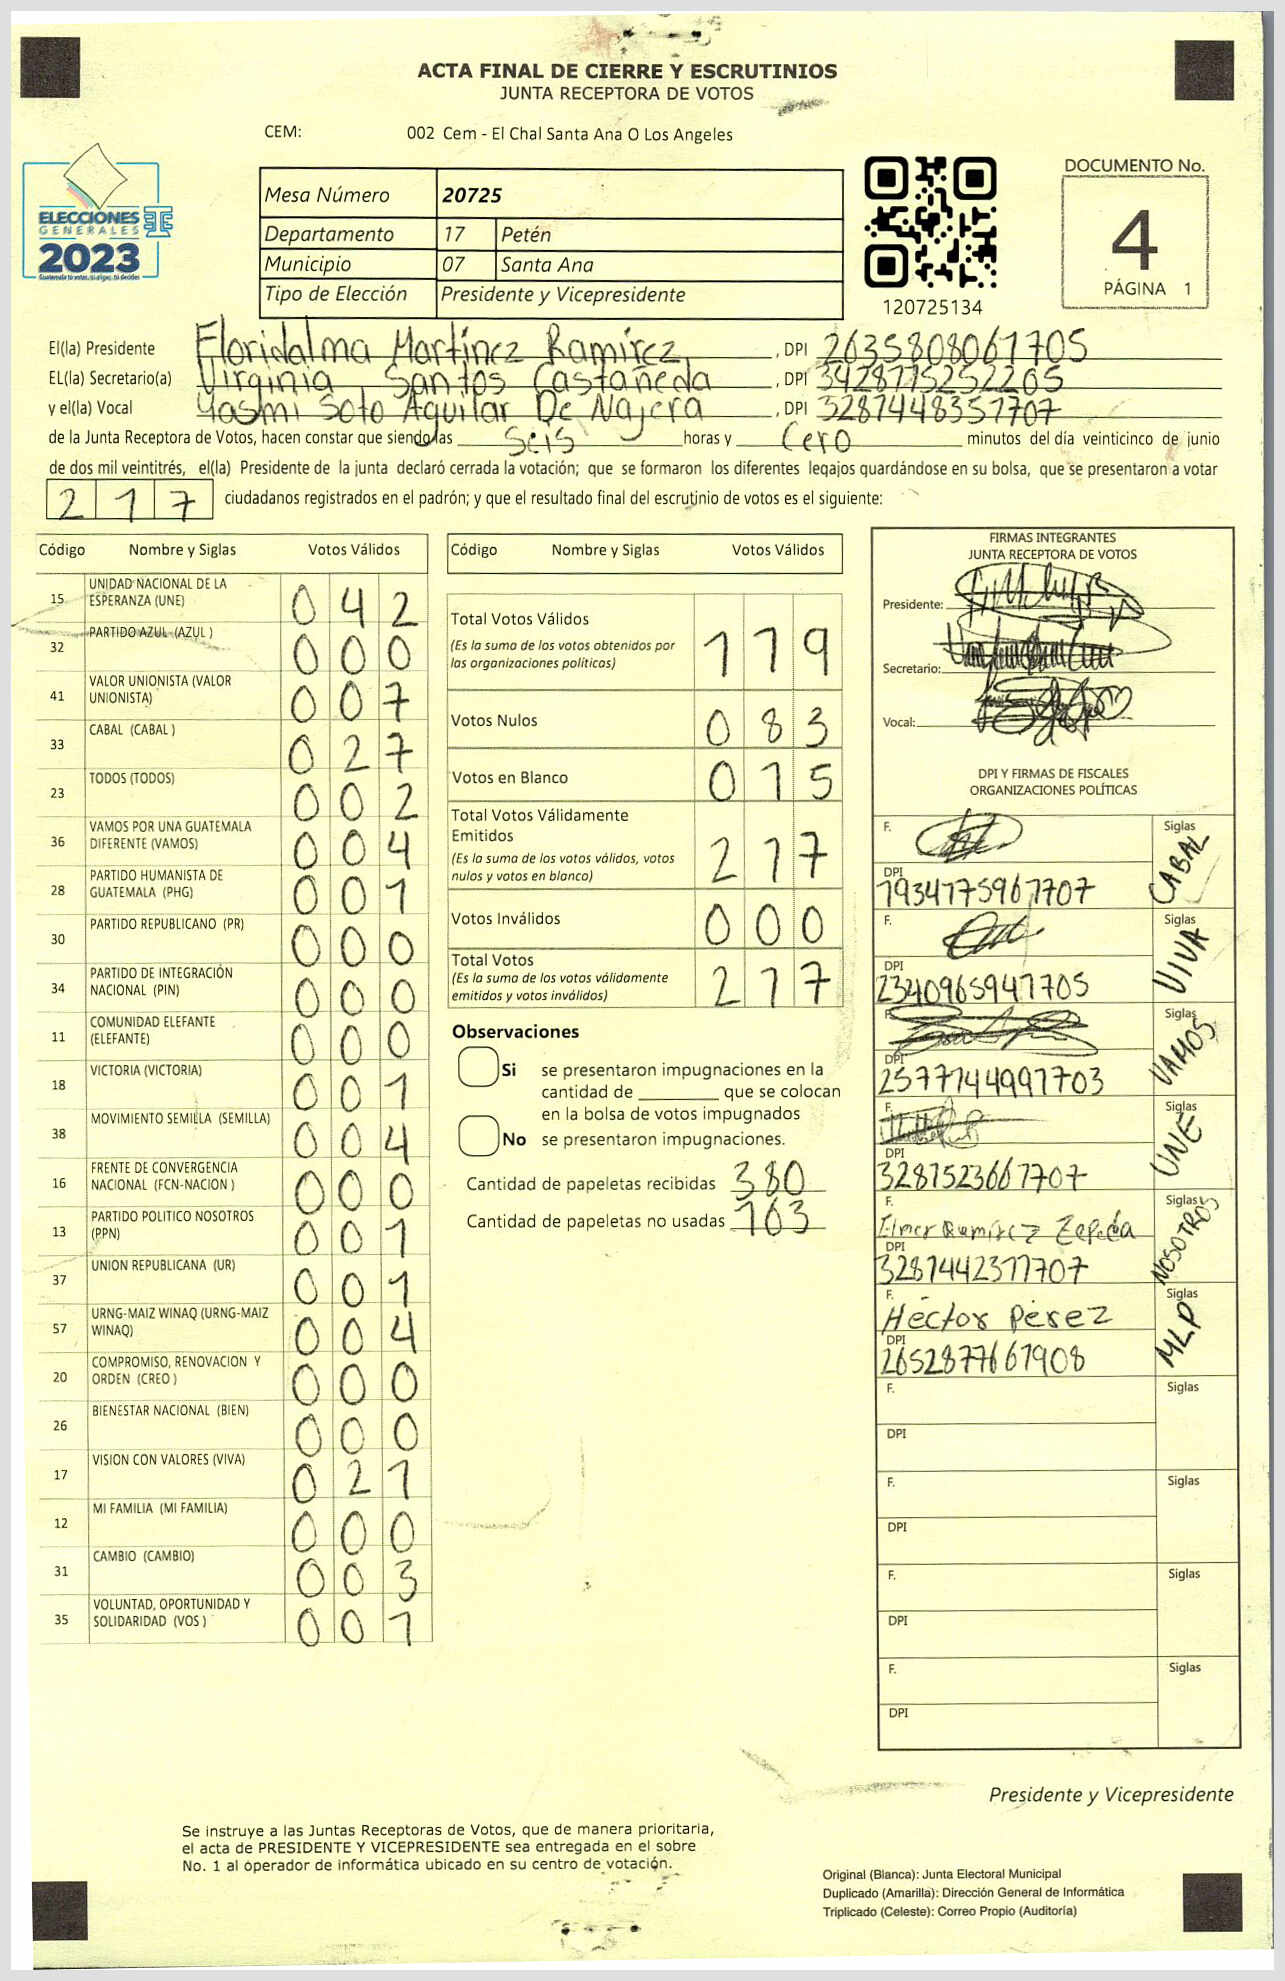 ACTA FINAL DE CIERRE Y ESCRUTINIOS
JUNTA RECEPTORA DE VOTOS
CEM: 002 Cem - El Chal Santa Ana O Los Angeles
ELECCIONES
GENERALES
2023
Mesa Número 20725
Departamento 17 Petén
Municipio 07 Santa Ana
Tipo de Elección Presidente y Vicepresidente
120725134
DOCUMENTO No.
4
PÁGINA 1
El(la) Presidente Floridalma Martínez Ramírez, DPI 2635808061705
EL(la) Secretario(a) Virginia Santos Castañeda, DPI
y el(la) Vocal Yasmi Soto Aguilar De Najera, DPI 3287448357707
de la Junta Receptora de Votos, hacen constar que siendo las seis horas y cero minutos del día veinticinco de junio
de dos mil veintitrés, el(la) Presidente de la junta declaró cerrada la votación; que se formaron los diferentes legajos guardándose en su bolsa, que se presentaron a votar
217 ciudadanos registrados en el padrón; y que el resultado final del escrutinio de votos es el siguiente:
Código Nombre y Siglas Votos Válidos
15 UNIDAD NACIONAL DE LA ESPERANZA (UNE) 042
32 PARTIDO AZUL (AZUL ) 000
41 VALOR UNIONISTA (VALOR UNIONISTA) 007
33 CABAL (CABAL ) 027
23 TODOS (TODOS) 002
36 VAMOS POR UNA GUATEMALA DIFERENTE (VAMOS) 004
28 PARTIDO HUMANISTA DE GUATEMALA (PHG) 001
30 PARTIDO REPUBLICANO (PR) 000
34 PARTIDO DE INTEGRACIÓN NACIONAL (PIN) 000
11 COMUNIDAD ELEFANTE (ELEFANTE) 000
18 VICTORIA (VICTORIA) 001
38 MOVIMIENTO SEMILLA (SEMILLA) 004
16 FRENTE DE CONVERGENCIA NACIONAL (FCN-NACION ) 000
13 PARTIDO POLITICO NOSOTROS (PPN) 001
37 UNION REPUBLICANA (UR) 001
57 URNG-MAIZ WINAQ (URNG-MAIZ WINAQ) 004
20 COMPROMISO, RENOVACION Y ORDEN (CREO ) 000
26 BIENESTAR NACIONAL (BIEN) 000
17 VISION CON VALORES (VIVA) 021
12 MI FAMILIA (MI FAMILIA) 000
31 CAMBIO (CAMBIO) 003
35 VOLUNTAD, OPORTUNIDAD Y SOLIDARIDAD (VOS ) 001
Código Nombre y Siglas Votos Válidos
Total Votos Válidos
(Es la suma de los votos obtenidos por
las organizaciones políticas)
119
Votos Nulos 083
Votos en Blanco 015
Total Votos Válidamente
Emitidos
(Es la suma de los votos válidos, votos
nulos y votos en blanco)
217
Votos Inválidos 000
Total Votos
(Es la suma de los votos válidamente
emitidos y votos inválidos)
217
Observaciones
Si se presentaron impugnaciones en la
cantidad de ________ que se colocan
en la bolsa de votos impugnados
No se presentaron impugnaciones.
Cantidad de papeletas recibidas 380
Cantidad de papeletas no usadas 163
FIRMAS INTEGRANTES
JUNTA RECEPTORA DE VOTOS
Presidente:
Secretario:
Vocal:
DPI Y FIRMAS DE FISCALES
ORGANIZACIONES POLÍTICAS
F. Siglas CABAL
DPI 1934775967707
F. Siglas VIVA
DPI 2340965941705
F. Siglas VAMOS
DPI 2577744991703
F. Siglas UNE
DPI 3287523661707
F. Elmer Ramírez Zepeda Siglas NOSOTROS
DPI 3287442377707
F. Héctor Pérez Siglas MLP
DPI 2652877661908
F. Siglas
DPI
F. Siglas
DPI
F. Siglas
DPI
F. Siglas
DPI
Presidente y Vicepresidente
Se instruye a las Juntas Receptoras de Votos, que de manera prioritaria,
el acta de PRESIDENTE Y VICEPRESIDENTE sea entregada en el sobre
No. 1 al operador de informática ubicado en su centro de votación.
Original (Blanca): Junta Electoral Municipal
Duplicado (Amarilla): Dirección General de Informática
Triplicado (Celeste): Correo Propio (Auditoría)